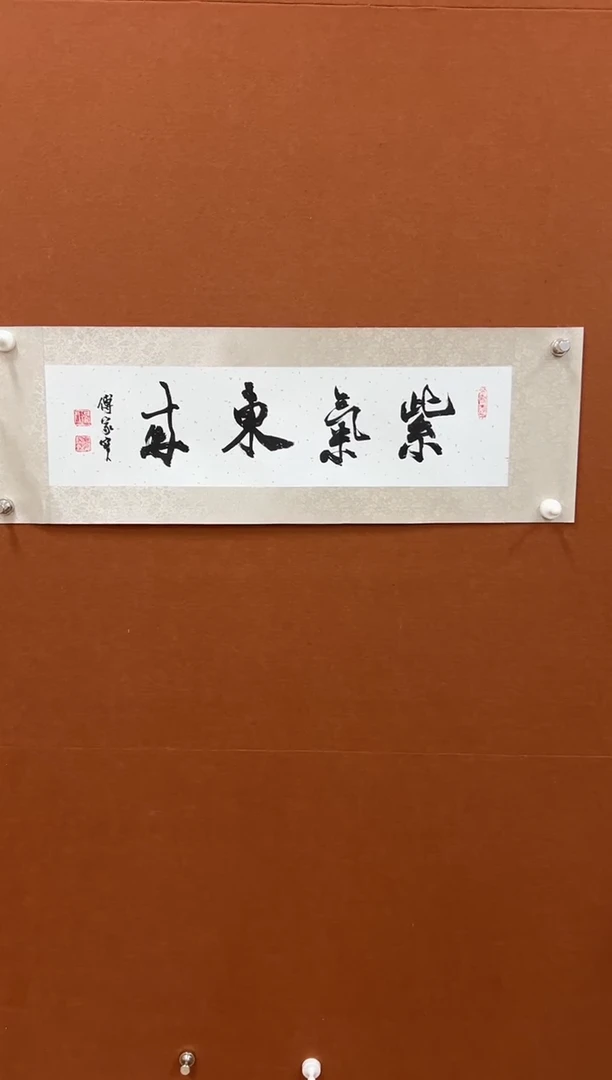 紫氣東來
傅家寶